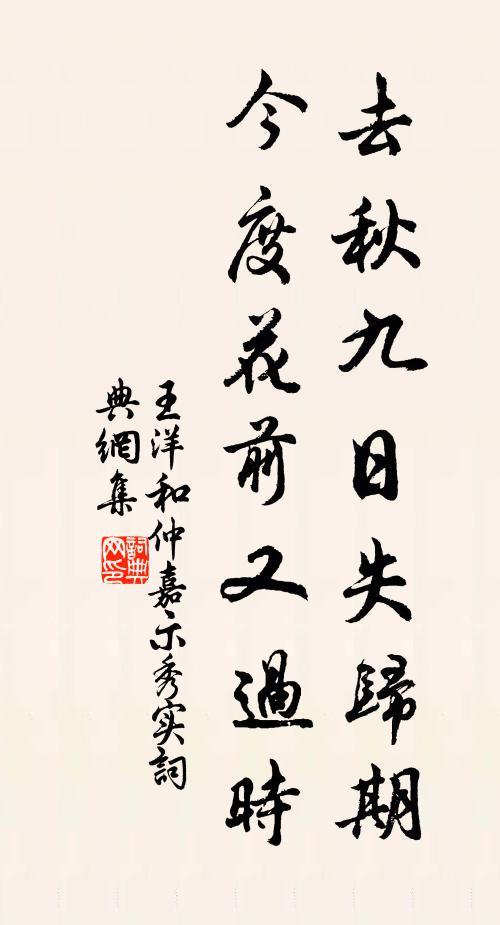 去秋九日失歸期
今度花前又過時
王洋和仲嘉示秀实詞
典網集
詞典
网印